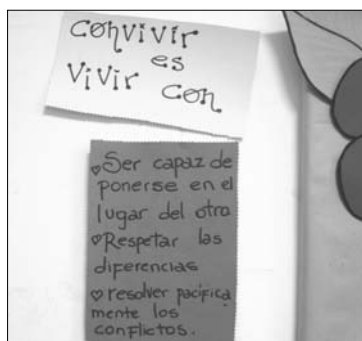 convivir
es
vivir con
♥Ser capaz de
ponerse en el
lugar del otro
♥Respetar las
diferencias
♥resolver pacífica
mente los
conflictos.